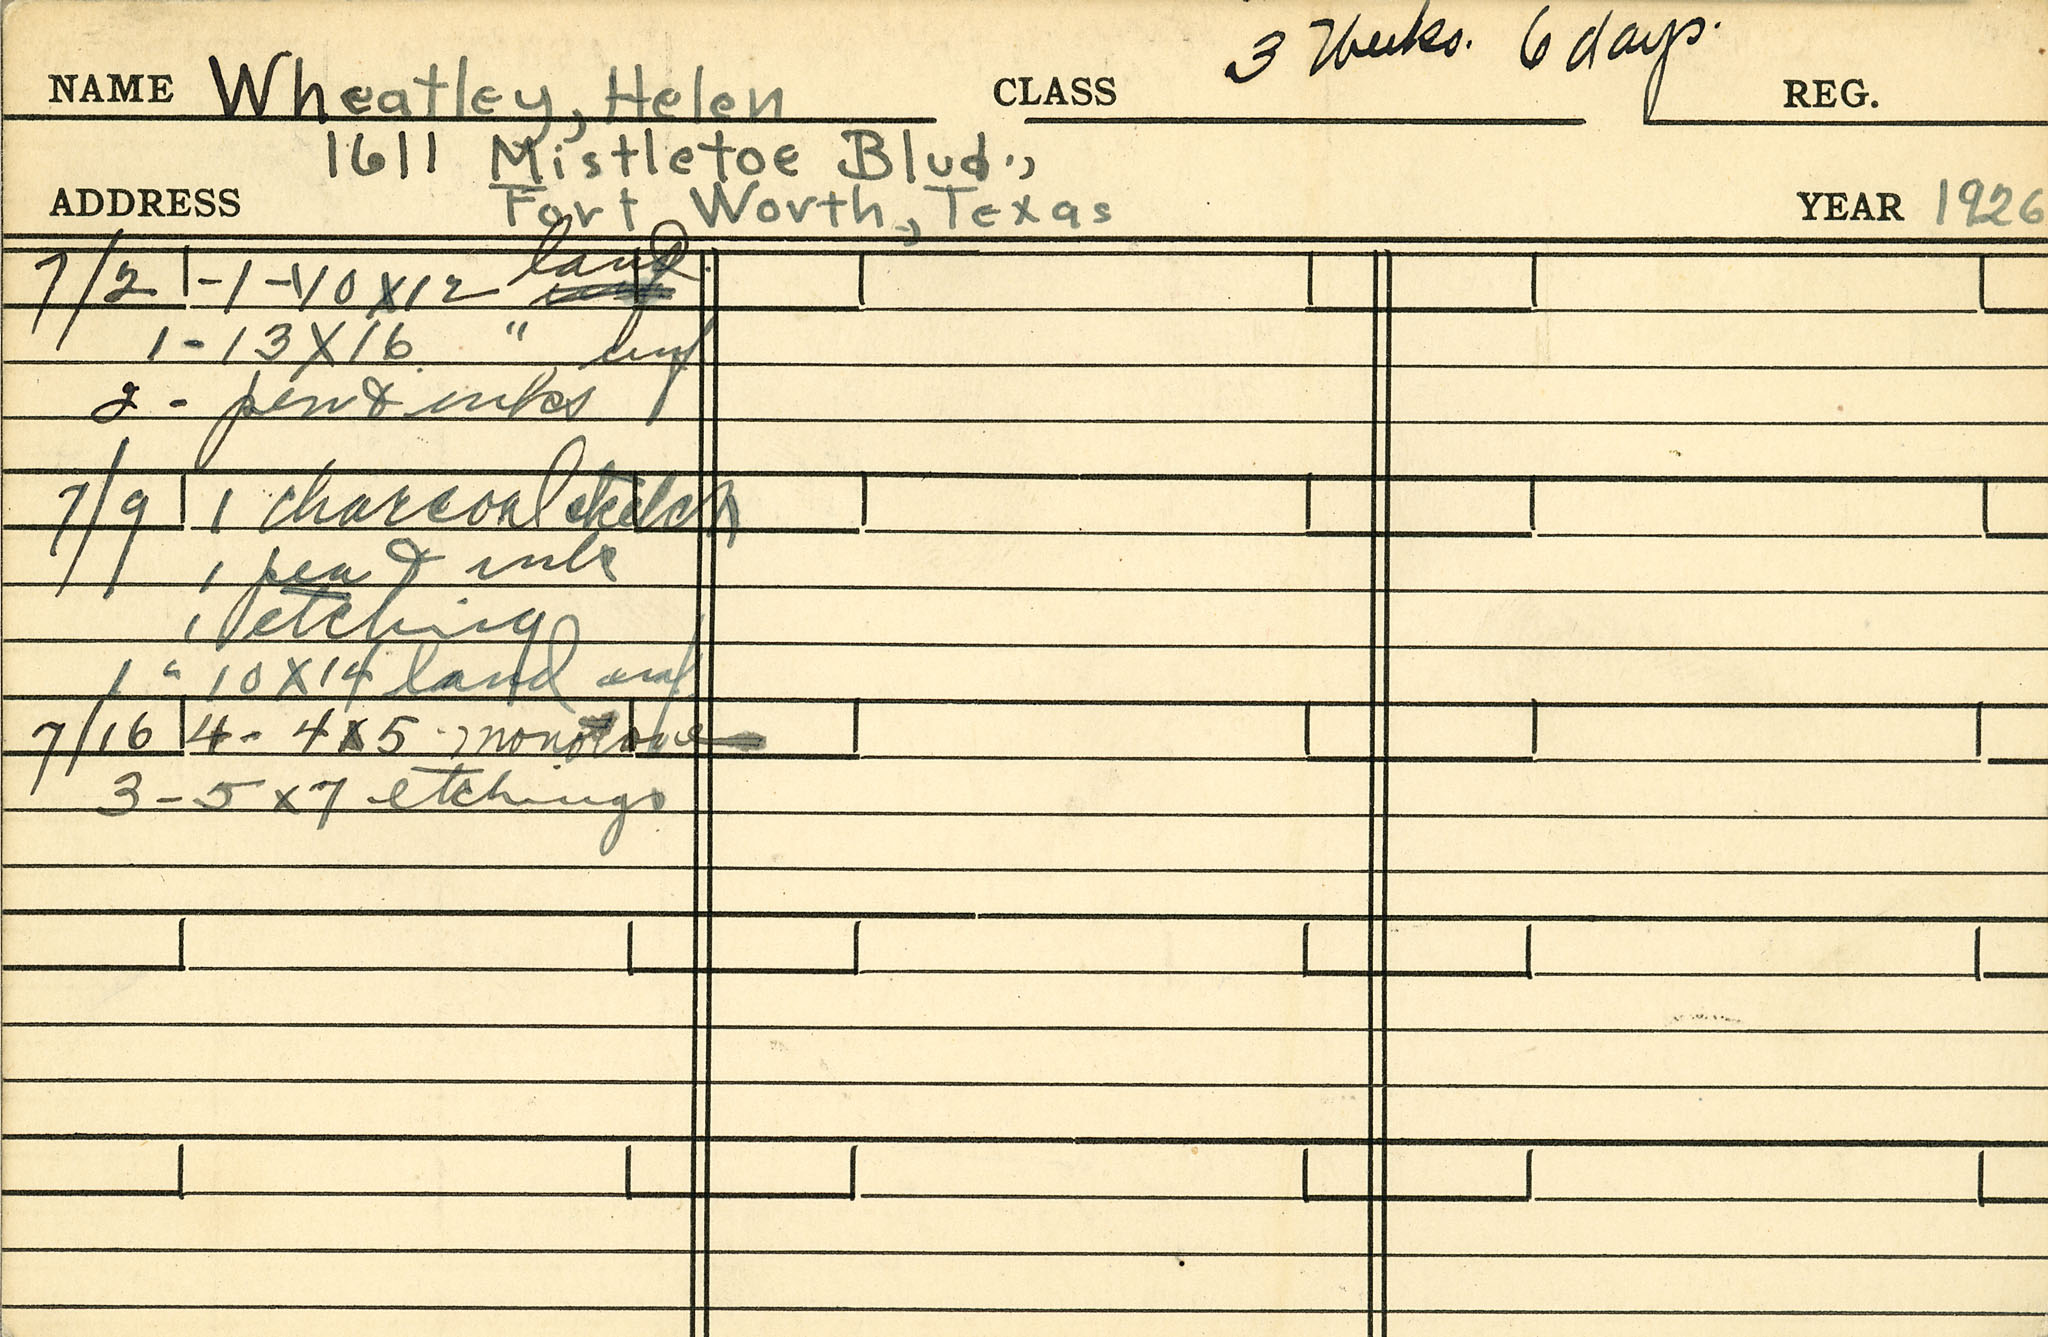 3 Weeks. 6 days.
NAME Wheatley, Helen CLASS REG.
1611 Mistletoe Blvd.,
ADDRESS Fort Worth, Texas YEAR 1926
7/2 -1-10X12 land
1-13X16 " unf
2 - pen & inks
7/9 1 charcoal sketch
1 pen & ink
1 etching
1 " 10X14 land unf
7/16 4- 4x5 monotone
3-5x7 etchings